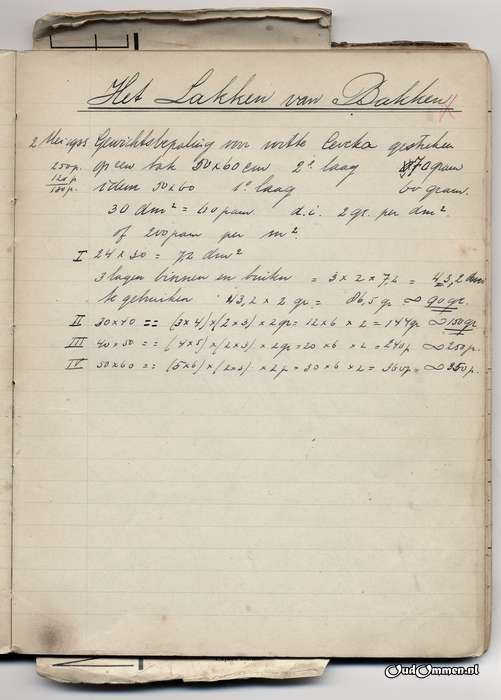 Het Lakken van Bakken
2 Mei 1935 Gewichtsbepaling van witte Cevka gestreken
250 gr. op een bak 50 x 60 cm 2e laag 70 gram
idem 50 x 60 1e laag 60 gram.
30 dm² = 60 gram d.i. 2 gr. per dm².
of 200 gram per m².
I 24 x 30 = 7,2 dm²
3 lagen binnen en buiten = 3 x 2 x 7,2 = 43,2 dm²
te gebruiken 43,2 x 2 gr = 86,5 gr ∞ 90 gr.
II 30 x 40 == (3 x 4) x (2 x 3) x 2 gr = 12 x 6 x 2 = 144 gr ∞ 150 gr
III 40 x 50 == (4 x 5) x (2 x 3) x 2 gr = 20 x 6 x 2 = 240 gr. ∞ 250 gr.
IV 50 x 60 == (5 x 6) x (2 x 3) x 2 gr = 30 x 6 x 2 = 360 gr. ∞ 350 gr.
OudOmmen.nl